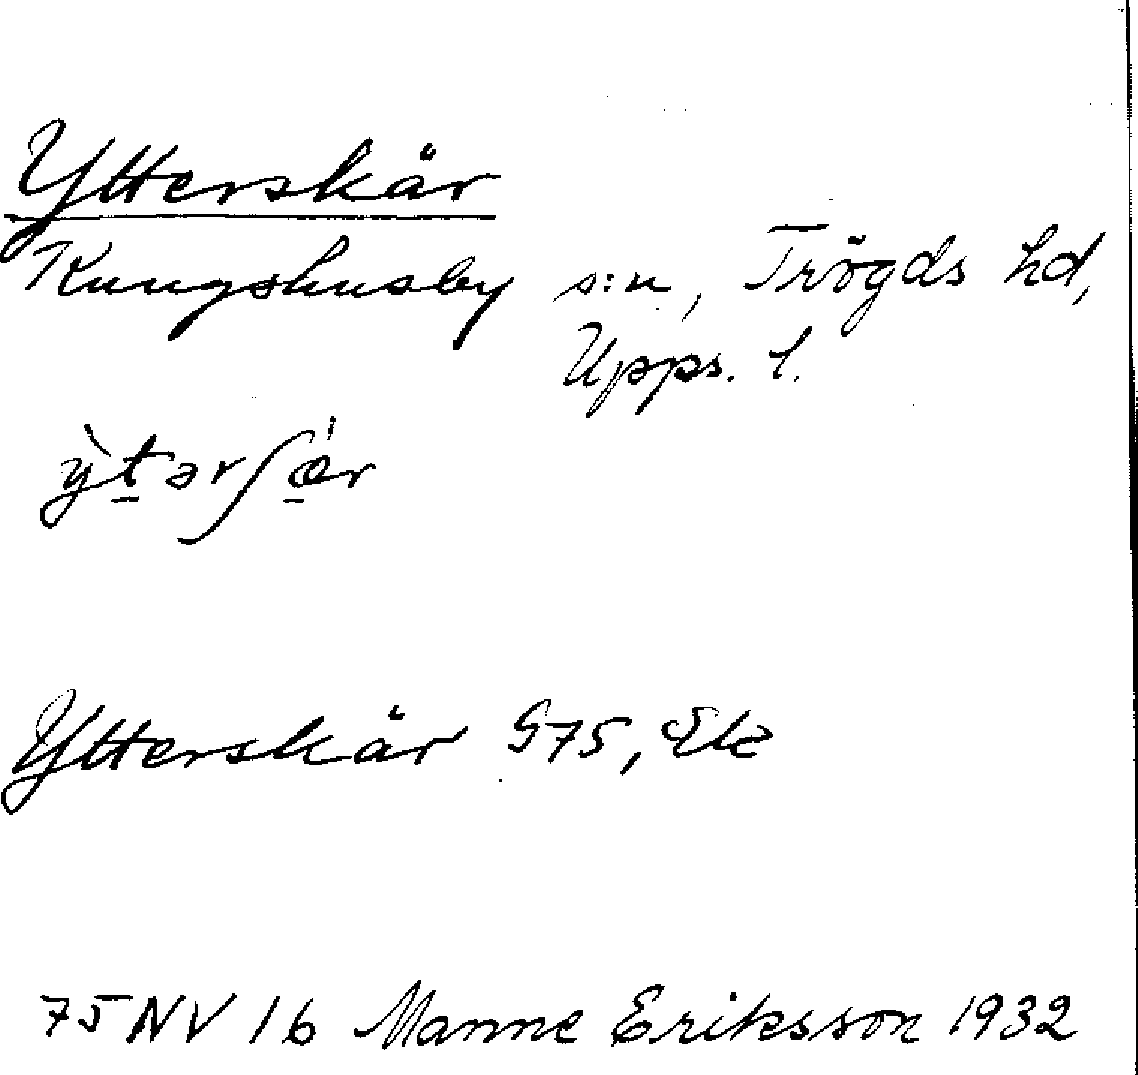 Ytterskär
Kungshusby s:n, Trögds hd,
Upps. l.
ỳt̠ərʃǽ̠r
Ytterskär G75, Ek
75 NV 1b Manne Eriksson 1932